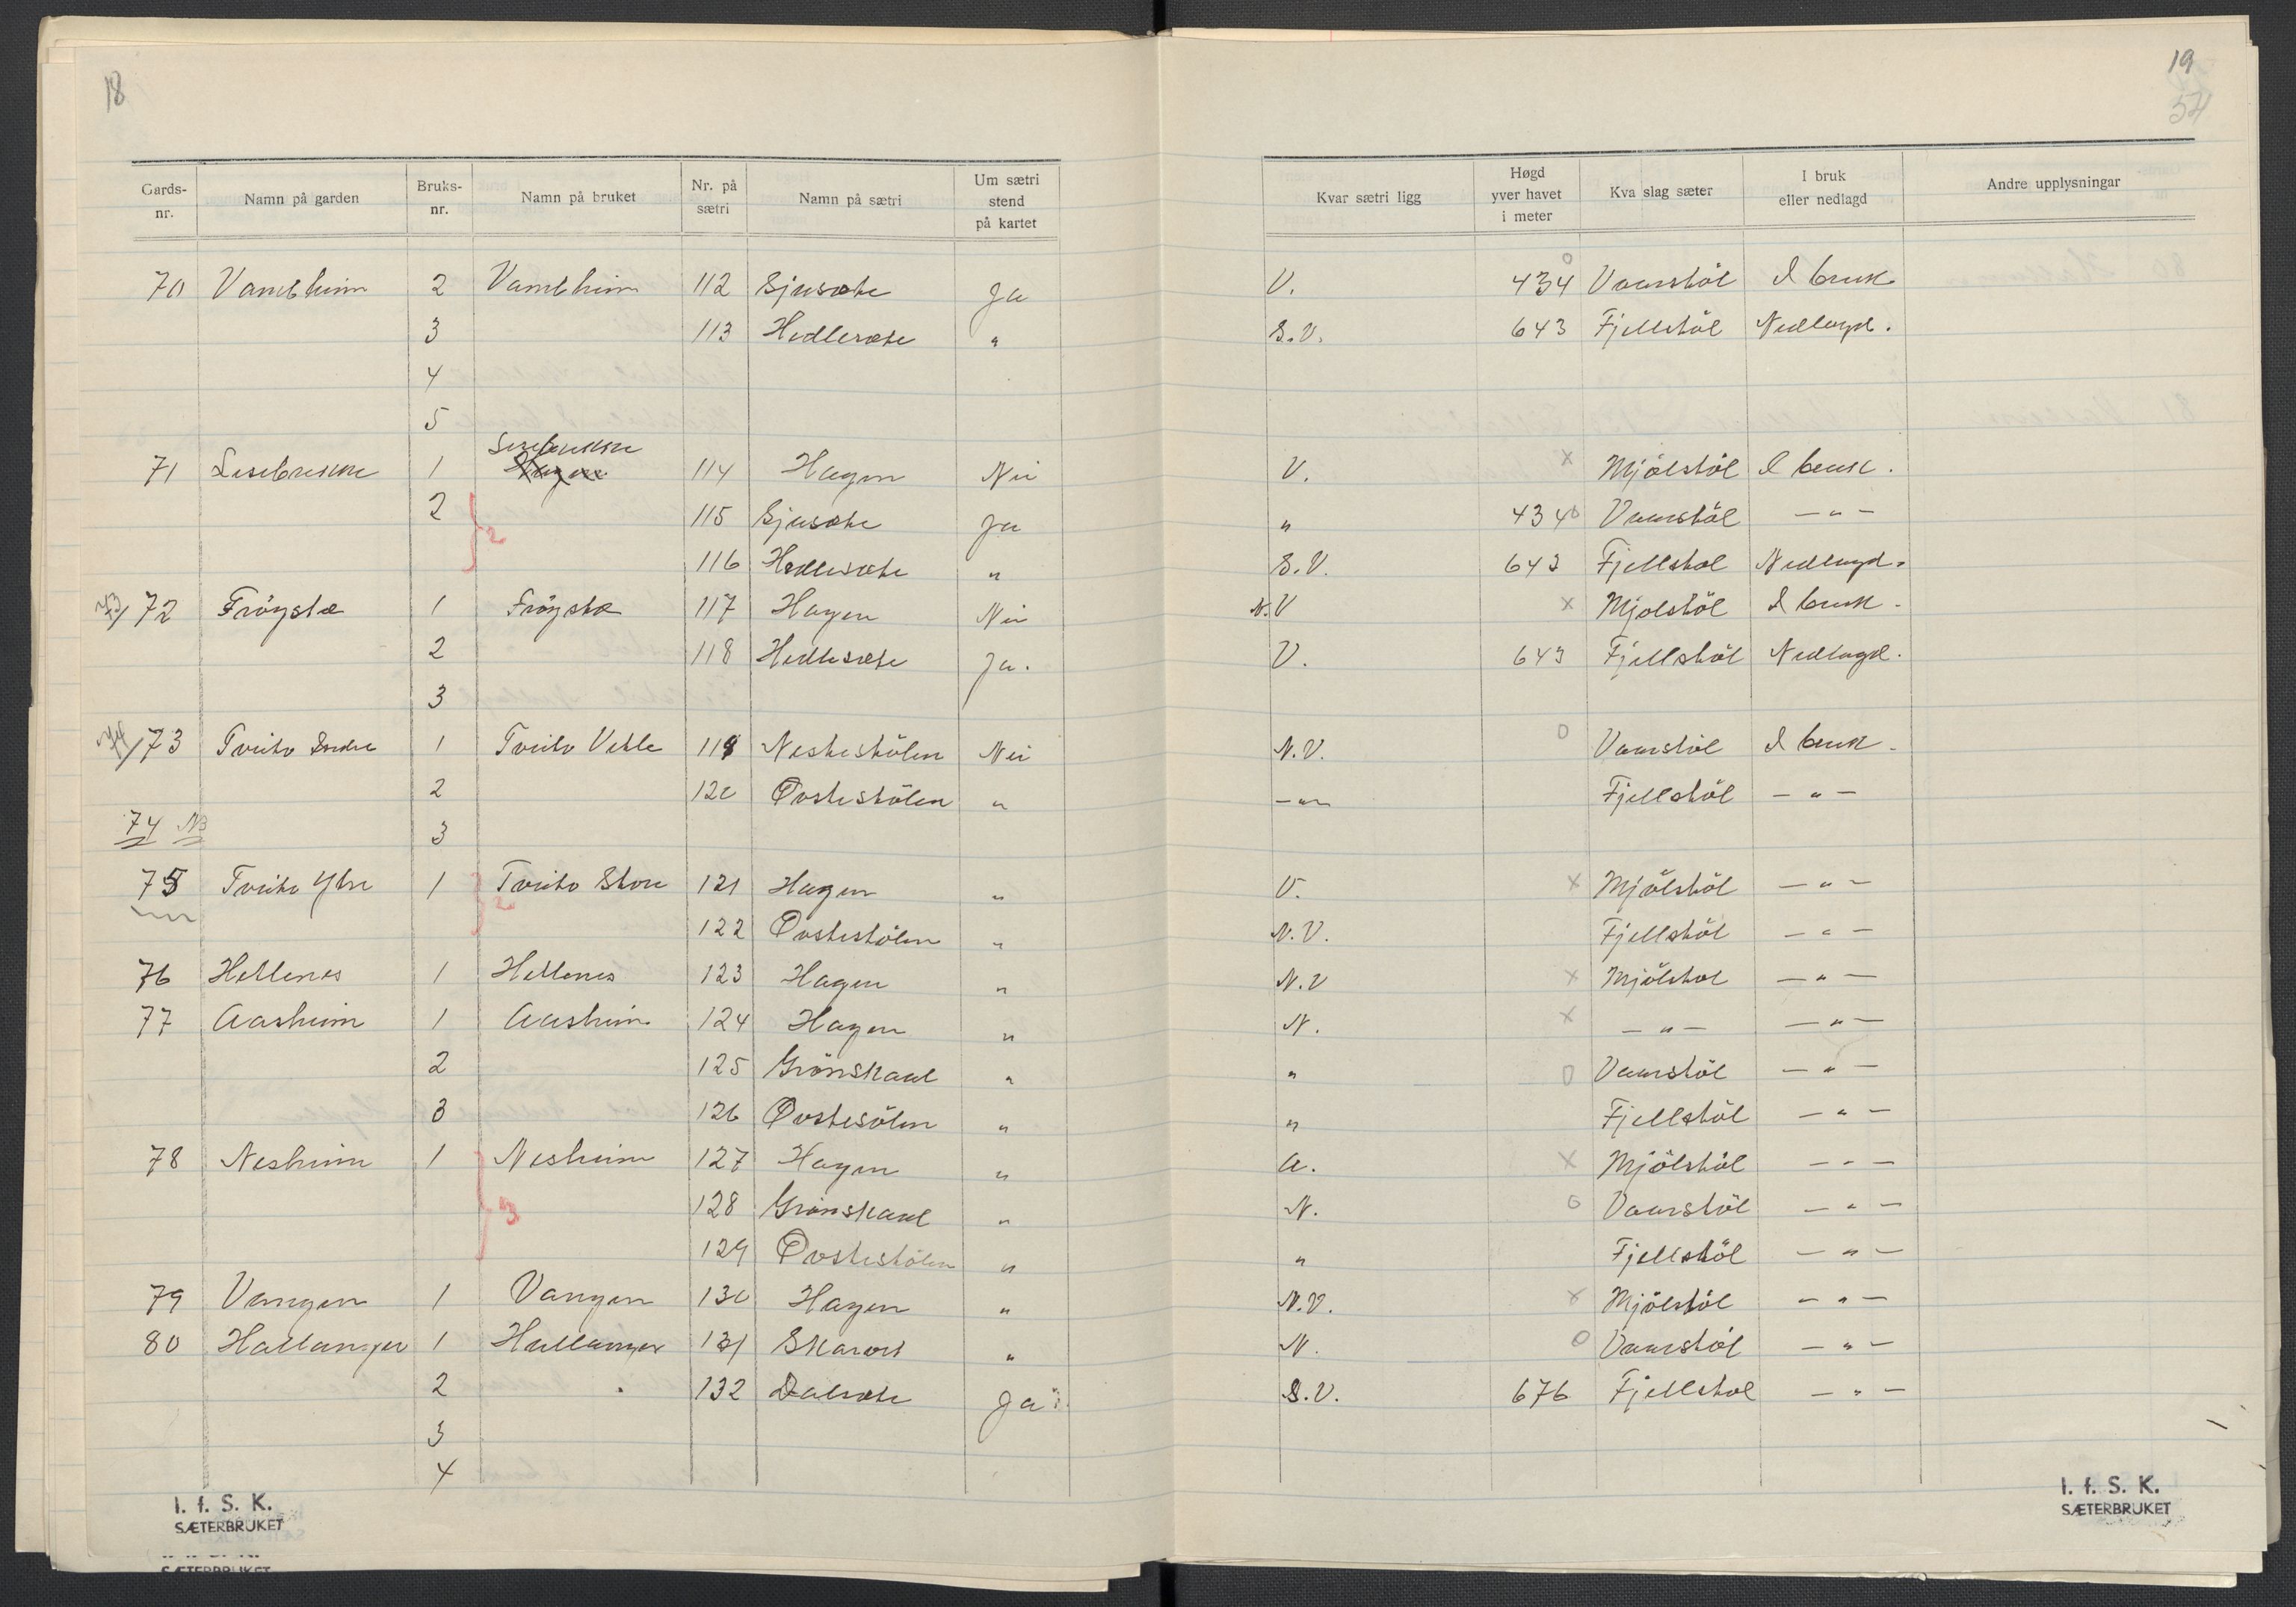 18
Gards-nr. Namn på garden Bruks-nr. Namn på bruket Nr. på sætri Namn på sætri Um sætri stend på kartet
70 Vambheim 2 Vambheim 112 Sjusæte Ja
3 113 Hedlesæte "
4
5
Sesebrekke
71 Sesebrekke 1 Hagen 114 Hagen Nei
2 115 Sjusæte Ja
2
116 Hedlesæte "
73/ 72 Frøystæ 1 Frøystæ 117 Hagen Nei
2 118 Hedlesæte Ja.
3
74/ 73 Tveito Indre 1 Tveito Vetle 119 Nestestölen Nei
2 120 Øvstestölen "
74 NB 3
75 Tveito Ytre 1 Tveito Store 121 Hagen "
2
122 Øvstestölen "
76 Hellenes 1 Hellenes 123 Hagen "
77 Aasheim 1 Aasheim 124 Hagen "
2 125 Grönskaal "
3 126 Øvstesölen "
78 Nesheim 1 Nesheim 127 Hagen "
3 128 Grönskaal "
129 Øvstestölen "
79 Vangen 1 Vangen 130 Hagen "
80 Hallanger 1 Hallanger 131 "
2 " 132 Dalsæte Ja
3
4
I. f. S. K.
SÆTERBRUKET
SÆTERBRUKET
19
54
Kvar sætri ligg Høgd yver havet i meter Kva slag sæter I bruk eller nedlagd Andre upplysningar
V. 434 o Vaarstöl I bruk
S.V. 643 Fjellstöl Nedlagd.
V. x Mjölstöl I bruk.
" 434 o Vaarstöl — " —
S.V. 643 Fjellstøl Nedlagd.
N.V x Mjølstöl I bruk.
V. 643 Fjellstöl Nedlagd.
N.V. o Vaarstöl I bruk.
— " — Fjellstöl — " —
V. x Mjölstöl — " —
N.V. Fjellstöl — " —
N.V x Mjölstøl — " —
N. x — " — — " —
" o Vaarstöl — " —
" Fjellstöl — " —
A. x Mjölstöl — " —
N. o Vaarstöl — " —
" Fjellstöl — " —
N.V. x Mjölstöl — " —
N. o Vaarstöl — " —
S.V. 676 Fjellstøl — " —
I. f. S. K.
SÆTERBRUKET